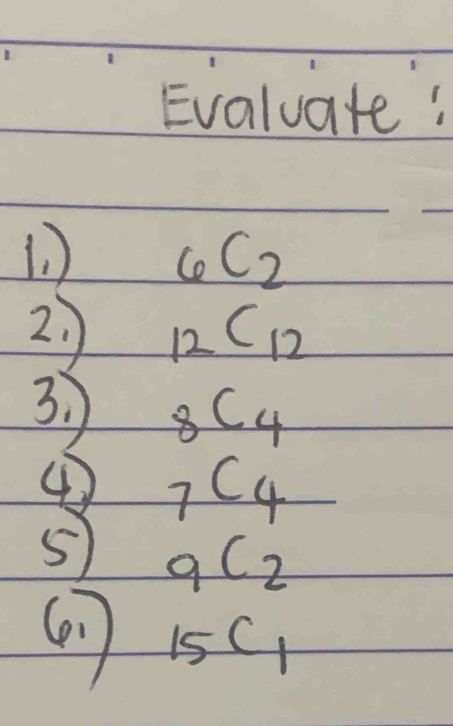 Evaluate :
1.) 6C2
2.) 12C12
3.) 8C4
4.) 7C4
5) 9C2
6.) 15C1